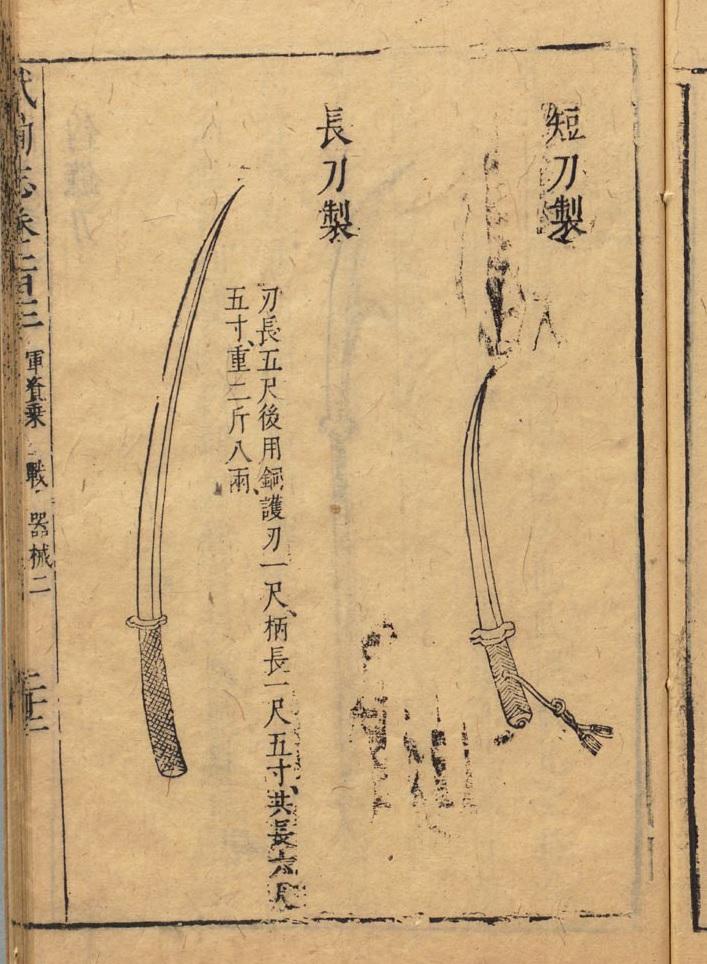 短刀製
長刀製
刃長五尺後用銅護刃一尺、柄長一尺五寸、共長六尺
五寸、重二斤八兩、
武備志卷一百三 軍資乗 戰 器械二